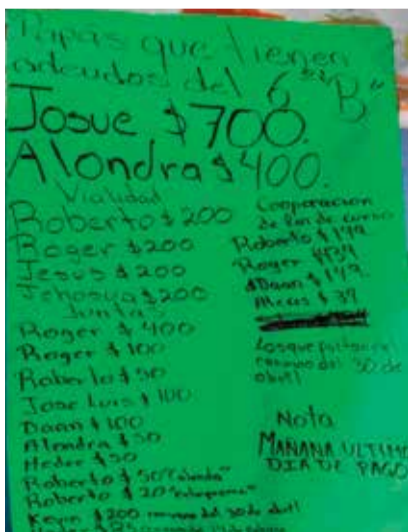 Papas que tienen
adeudos del 6 "B"
Josue $700.
Alondra $400.
Vialidad
Roberto $200
Roger $200
Jesus $200
Jehosua $200
Juntas
Roger $400
Roger $100
Roberto $50
Jose Luis $100
Daan $100
Alondra $50
Heder $50
Roberto $50
Roberto $20
Kevin $200 del 30 de abril
$25
Cooperacion
de fin de curso
Roberto $149
Roger $139
Daan $149.
$39
Los que
del 30 de
abril
Nota
MAÑANA ULTIMO
DIA DE PAGO